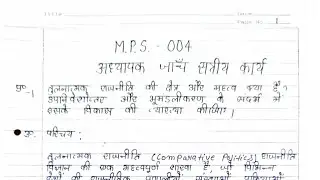 Page No. 1
M.P.S. - 004
अध्यापक जाँच सत्रीय कार्य
प्र०-1 तुलनात्मक राजनीति की क्षेत्र और महत्व क्या है?
उपनिवेशोत्तर और भूमंडलीकरण के संदर्भ में
इसके विकास की व्याख्या कीजिए।
उ० परिचय:
तुलनात्मक राजनीति (Comparative Politics) राजनीति
विज्ञान की एक महत्वपूर्ण शाखा है, जो विभिन्न
देशों की राजनीतिक